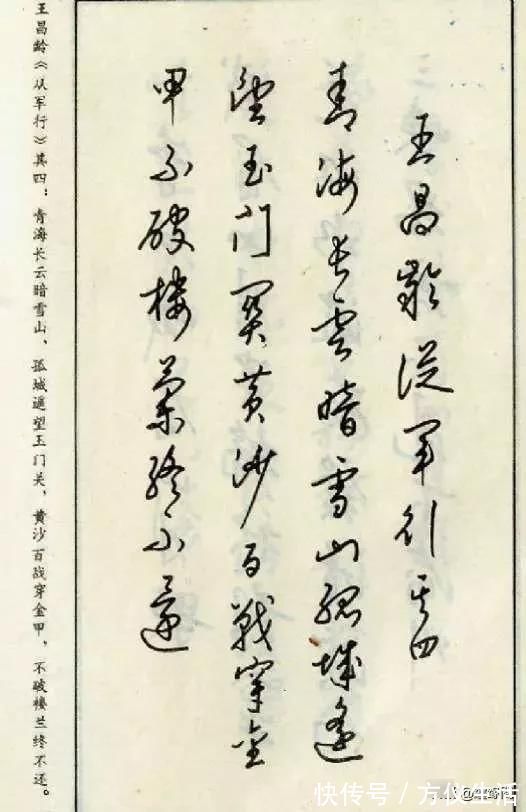 王昌齡從軍行其四
青海長雲暗雪山孤城遙
望玉門關黃沙百戰穿金
甲不破樓蘭終不還
王昌龄《从军行》其四：青海长云暗雪山、孤城遥望玉门关，黄沙百战穿金甲，不破楼兰终不还。
快传号／方仪生活